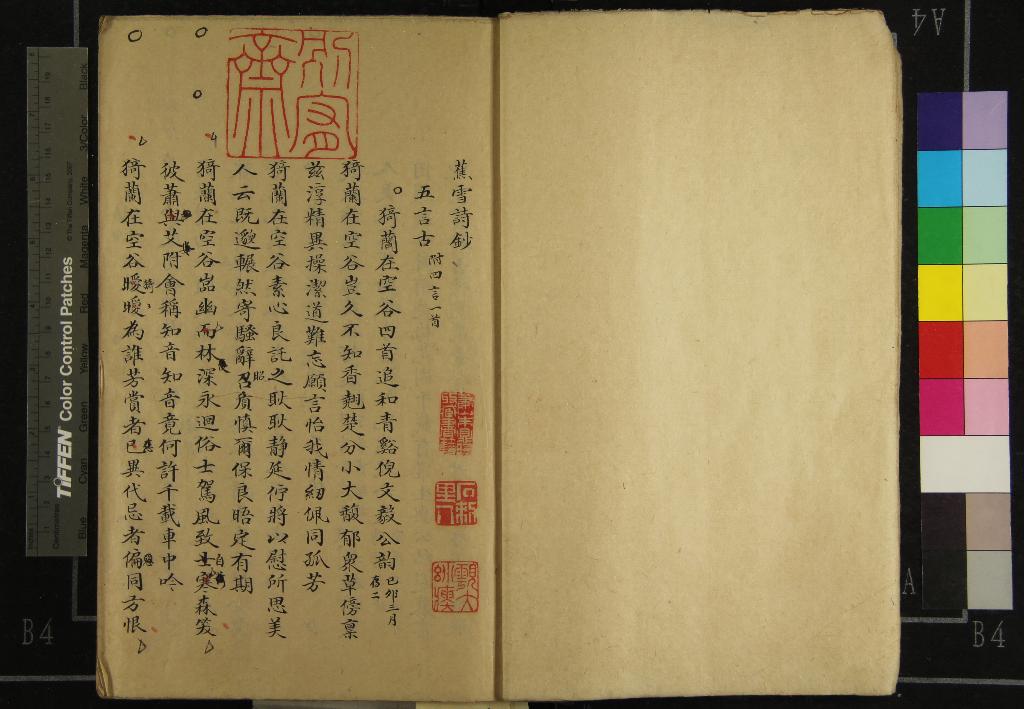 蕉雪詩鈔
五言古 附四言一首
猗蘭在空谷四首追和青谿倪文毅公韵 己卯三月 存二
猗蘭在空谷豈久不知香翹楚分小大馥郁衆草傍稟
茲淳精異操潔道難忘願言怡我情紉佩同孤芳
猗蘭在空谷素心良託之耿耿静延佇將以慰所思美
人云既邈輾然寄騷辭召貭慎爾保良晤定有期
昭
猗蘭在空谷嵓幽而林深永迴俗士駕風致士寒森笈
自
彼蕭與艾附會稱知音知音竟何許千載車中吟
猗蘭在空谷曖曖為誰芳賞者已異代忌者偏同方恨
猗
TIFFEN Color Control Patches
© The Tiffen Company, 2007
Centimetres
Inches
Blue Cyan Green Yellow Red Magenta White 3/Color Black
A4
A
B4
B4